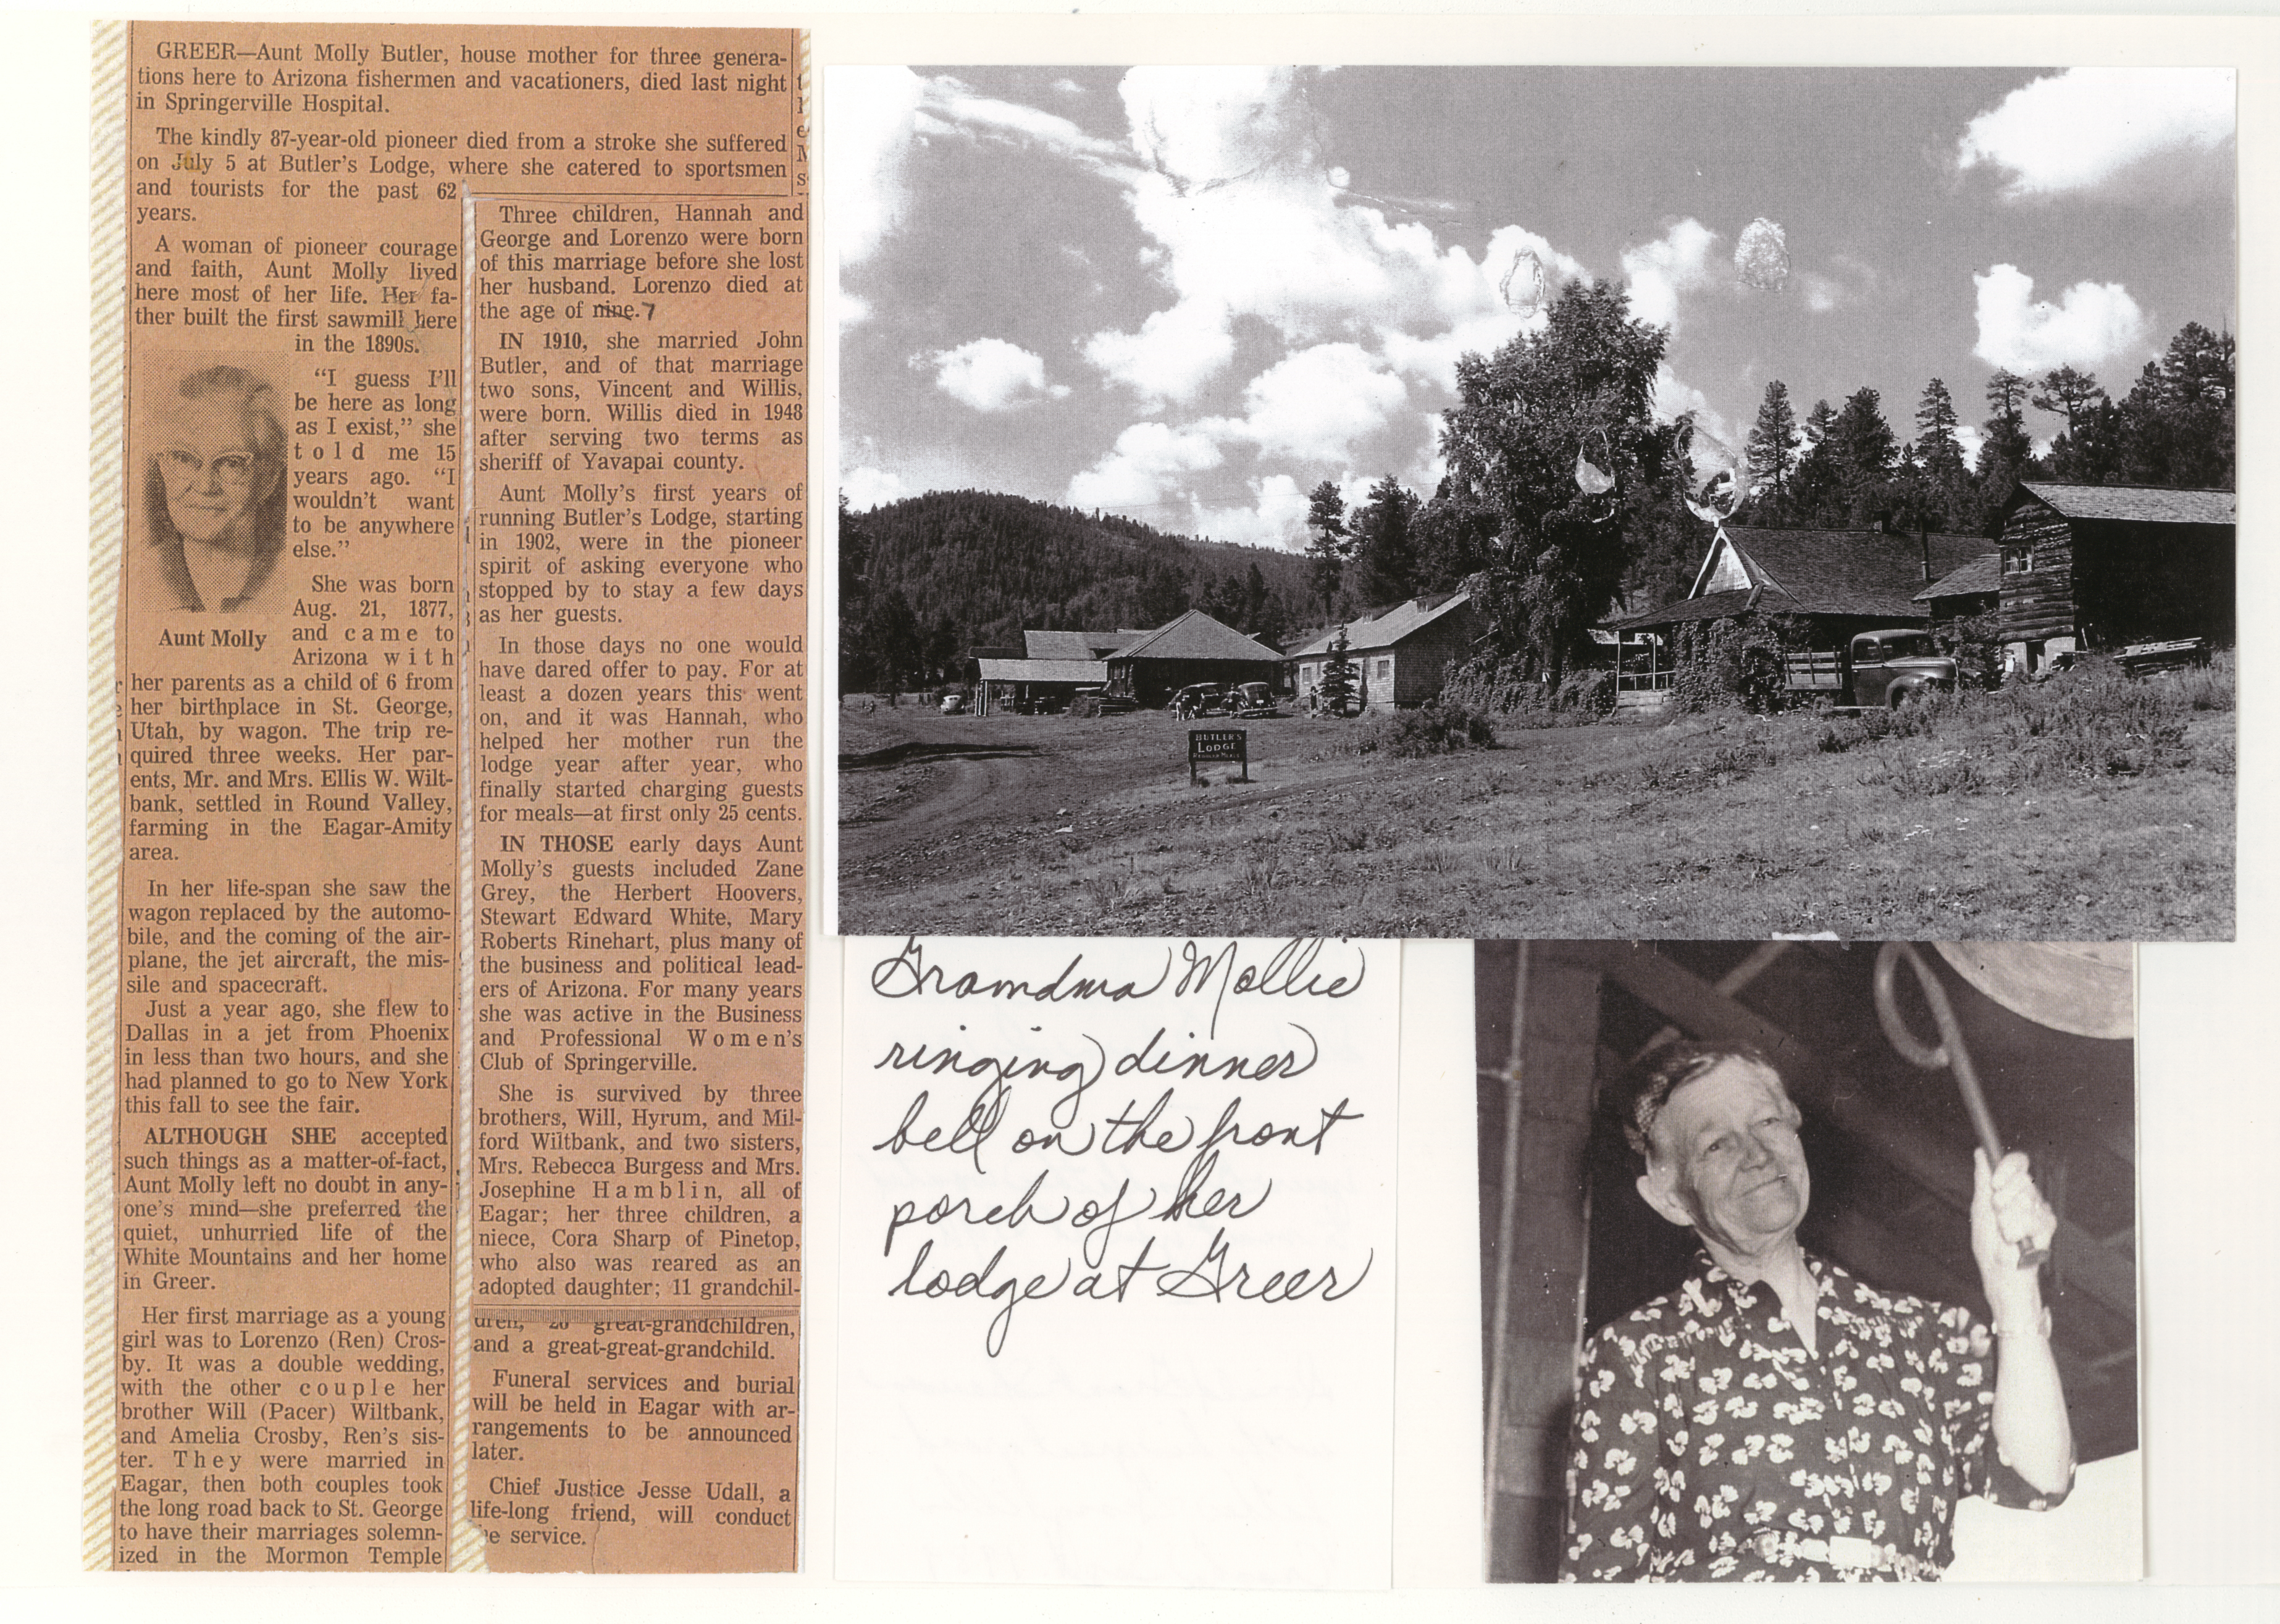 GREER—Aunt Molly Butler, house mother for three genera-
tions here to Arizona fishermen and vacationers, died last night
in Springerville Hospital.
The kindly 87-year-old pioneer died from a stroke she suffered
on July 5 at Butler's Lodge, where she catered to sportsmen
and tourists for the past 62
years.
A woman of pioneer courage
and faith, Aunt Molly lived
here most of her life. Her fa-
ther built the first sawmill here
in the 1890s.
"I guess I'll
be here as long
as I exist," she
told me 15
years ago. "I
wouldn't want
to be anywhere
else."
She was born
Aug. 21, 1877,
and came to
Arizona with
Aunt Molly
her parents as a child of 6 from
her birthplace in St. George,
Utah, by wagon. The trip re-
quired three weeks. Her par-
ents, Mr. and Mrs. Ellis W. Wilt-
bank, settled in Round Valley,
farming in the Eagar-Amity
area.
In her life-span she saw the
wagon replaced by the automo-
bile, and the coming of the air-
plane, the jet aircraft, the mis-
sile and spacecraft.
Just a year ago, she flew to
Dallas in a jet from Phoenix
in less than two hours, and she
had planned to go to New York
this fall to see the fair.
ALTHOUGH SHE accepted
such things as a matter-of-fact,
Aunt Molly left no doubt in any-
one's mind—she preferred the
quiet, unhurried life of the
White Mountains and her home
in Greer.
Her first marriage as a young
girl was to Lorenzo (Ren) Cros-
by. It was a double wedding,
with the other couple her
brother Will (Pacer) Wiltbank,
and Amelia Crosby, Ren's sis-
ter. They were married in
Eagar, then both couples took
the long road back to St. George
to have their marriages solemn-
ized in the Mormon Temple
Three children, Hannah and
George and Lorenzo were born
of this marriage before she lost
her husband. Lorenzo died at
the age of nine. 7
IN 1910, she married John
Butler, and of that marriage
two sons, Vincent and Willis,
were born. Willis died in 1948
after serving two terms as
sheriff of Yavapai county.
Aunt Molly's first years of
running Butler's Lodge, starting
in 1902, were in the pioneer
spirit of asking everyone who
stopped by to stay a few days
as her guests.
In those days no one would
have dared offer to pay. For at
least a dozen years this went
on, and it was Hannah, who
helped her mother run the
lodge year after year, who
finally started charging guests
for meals—at first only 25 cents.
IN THOSE early days Aunt
Molly's guests included Zane
Grey, the Herbert Hoovers,
Stewart Edward White, Mary
Roberts Rinehart, plus many of
the business and political lead-
ers of Arizona. For many years
she was active in the Business
and Professional Women's
Club of Springerville.
She is survived by three
brothers, Will, Hyrum, and Mil-
ford Wiltbank, and two sisters,
Mrs. Rebecca Burgess and Mrs.
Josephine Hamblin, all of
Eagar; her three children, a
niece, Cora Sharp of Pinetop,
who also was reared as an
adopted daughter; 11 grandchil-
dren, 20 great-grandchildren,
and a great-great-grandchild.
Funeral services and burial
will be held in Eagar with ar-
rangements to be announced
later.
Chief Justice Jesse Udall, a
life-long friend, will conduct
he service.
BUTLER'S
LODGE
REGULAR MEALS
Grandma Mollie
ringing dinner
bell on the front
porch of her
lodge at Greer